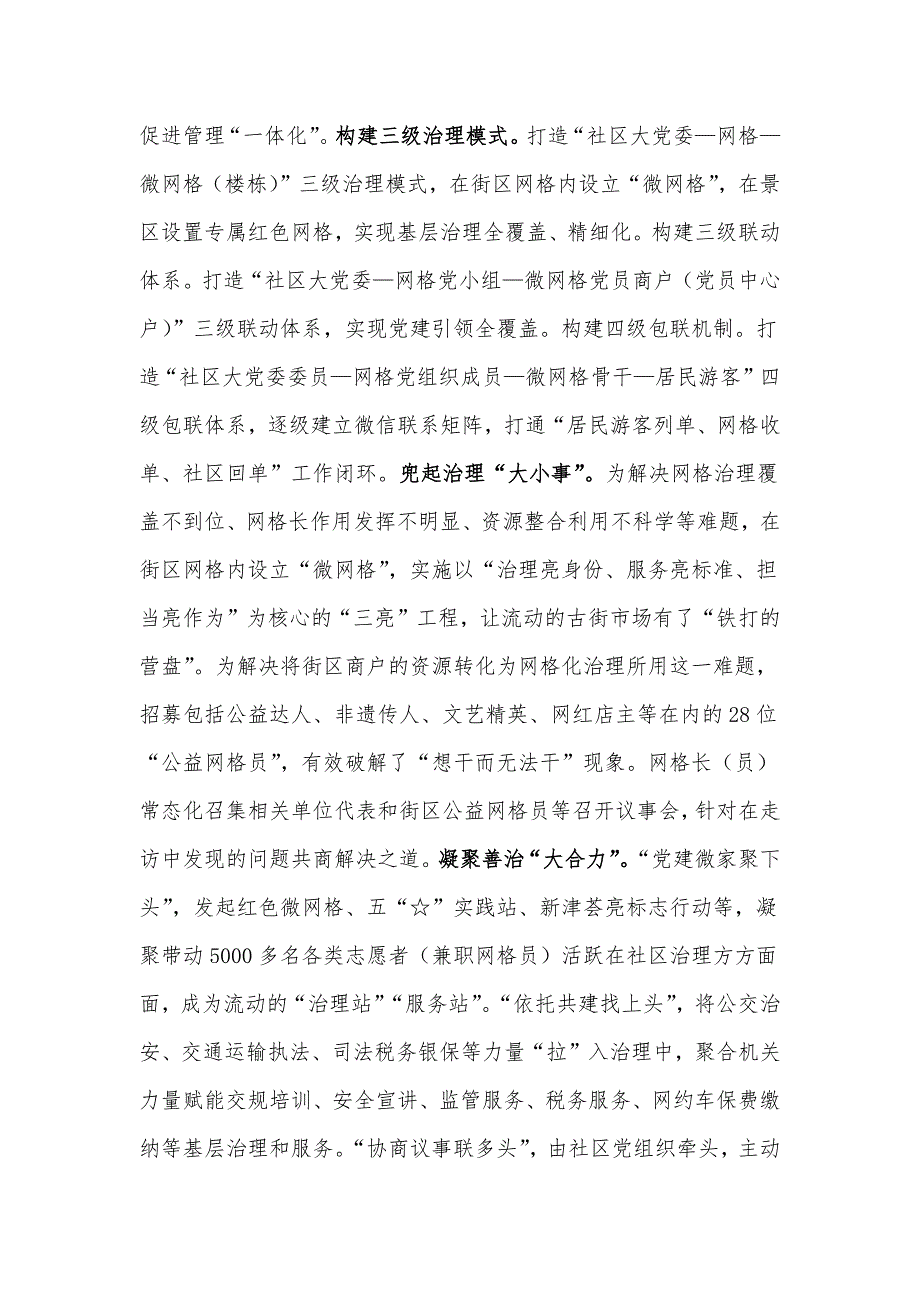 促进管理“一体化”。构建三级治理模式。打造“社区大党委—网格—
微网格（楼栋）”三级治理模式，在街区网格内设立“微网格”，在景
区设置专属红色网格，实现基层治理全覆盖、精细化。构建三级联动
体系。打造“社区大党委—网格党小组—微网格党员商户（党员中心
户）”三级联动体系，实现党建引领全覆盖。构建四级包联机制。打
造“社区大党委委员—网格党组织成员—微网格骨干—居民游客”四
级包联体系，逐级建立微信联系矩阵，打通“居民游客列单、网格收
单、社区回单”工作闭环。兜起治理“大小事”。为解决网格治理覆
盖不到位、网格长作用发挥不明显、资源整合利用不科学等难题，在
街区网格内设立“微网格”，实施以“治理亮身份、服务亮标准、担
当亮作为”为核心的“三亮”工程，让流动的古街市场有了“铁打的
营盘”。为解决将街区商户的资源转化为网格化治理所用这一难题，
招募包括公益达人、非遗传人、文艺精英、网红店主等在内的28位
“公益网格员”，有效破解了“想干而无法干”现象。网格长（员）
常态化召集相关单位代表和街区公益网格员等召开议事会，针对在走
访中发现的问题共商解决之道。凝聚善治“大合力”。“党建微家聚下
头”，发起红色微网格、五“☆”实践站、新津荟亮标志行动等，凝
聚带动5000多名各类志愿者（兼职网格员）活跃在社区治理方方面
面，成为流动的“治理站”“服务站”。“依托共建找上头”，将公交治
安、交通运输执法、司法税务银保等力量“拉”入治理中，聚合机关
力量赋能交规培训、安全宣讲、监管服务、税务服务、网约车保费缴
纳等基层治理和服务。“协商议事联多头”，由社区党组织牵头，主动